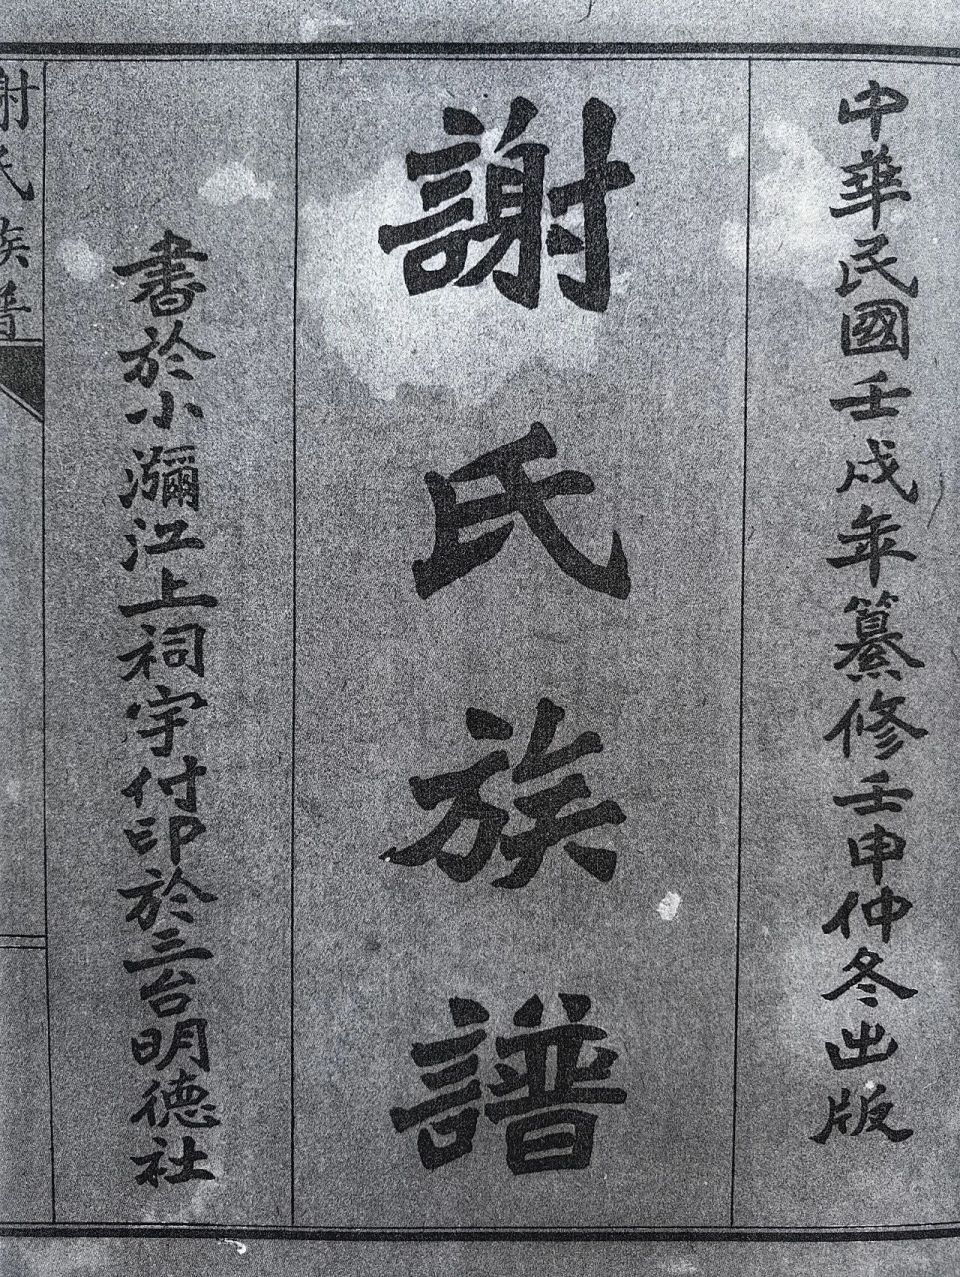 中華民國壬戌年纂修壬申仲冬出版
謝氏族譜
書於小瀰江上祠宇付印於三台明德社
謝氏族譜